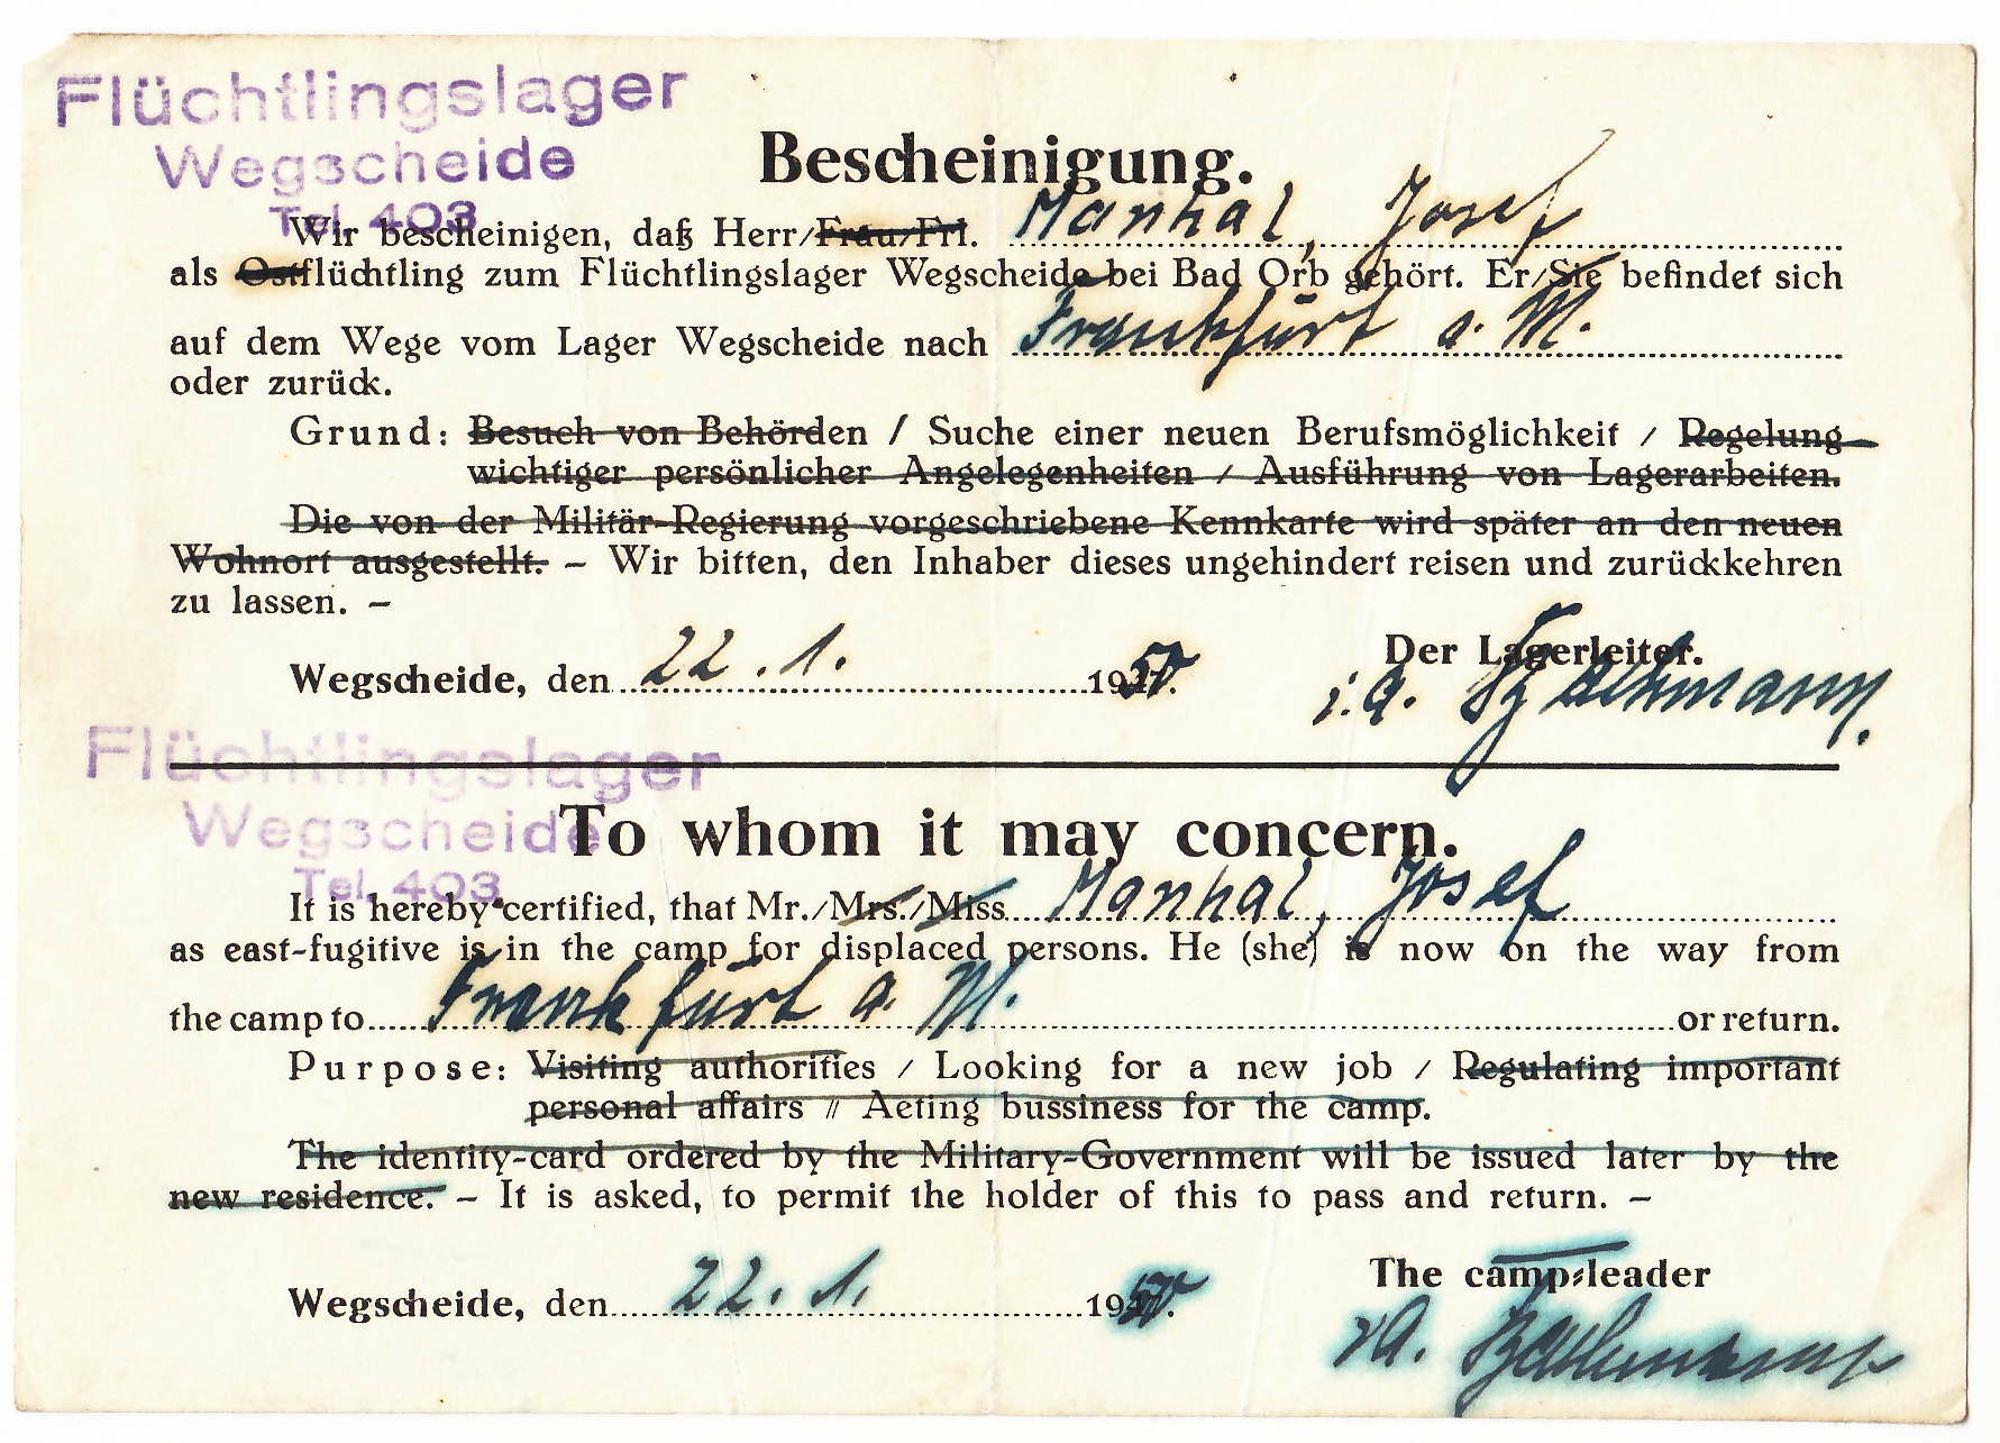 Flüchtlingslager
Wegscheide
Tel. 403
Bescheinigung.
Wir bescheinigen, daß Herr/Frau/Frl. Manhal, Josef
als Ostflüchtling zum Flüchtlingslager Wegscheide bei Bad Orb gehört. Er/Sie befindet sich
auf dem Wege vom Lager Wegscheide nach Frankfurt a. M.
oder zurück.
Grund: Besuch von Behörden / Suche einer neuen Berufsmöglichkeit / Regelung
wichtiger persönlicher Angelegenheiten / Ausführung von Lagerarbeiten.
Die von der Militär-Regierung vorgeschriebene Kennkarte wird später an den neuen
Wohnort ausgestellt. – Wir bitten, den Inhaber dieses ungehindert reisen und zurückkehren
zu lassen. –
Der Lagerleiter.
Wegscheide, den 22. 1. 1950.
i. A.
Flüchtlingslager
Wegscheide
Tel. 403
To whom it may concern.
It is hereby certified, that Mr./Mrs./Miss Manhal, Josef
as east-fugitive is in the camp for displaced persons. He (she) is now on the way from
the camp to Frankfurt a. M. or return.
Purpose: Visiting authorities / Looking for a new job / Regulating important
personal affairs // Aeting bussiness for the camp.
The identity-card ordered by the Military-Government will be issued later by the
new residence. – It is asked, to permit the holder of this to pass and return. –
The camp-leader
Wegscheide, den 22. 1. 1950.